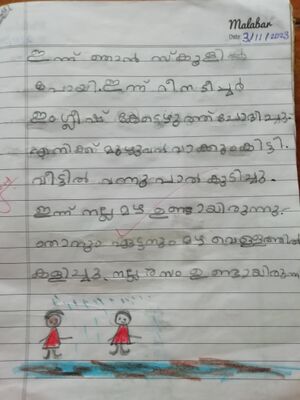 Malabar
Date: 3/11/2023
ഇന്ന് ഞാൻ സ്കൂളിൽ
പോയി. ഇന്ന് റീന ടീച്ചർ
ഇംഗ്ലീഷ് കേട്ടെഴുത്ത് ചോദിച്ചു.
എനിക്ക് മുഴുവൻ വാക്കും കിട്ടി.
വീട്ടിൽ വന്നു പാൽ കുടിച്ചു.
ഇന്ന് നല്ല മഴ ഉണ്ടായിരുന്നു.
ഞാനും ഏട്ടനും മഴ വെള്ളത്തിൽ
കളിച്ചു. നല്ല രസം ഉണ്ടായിരുന്നു